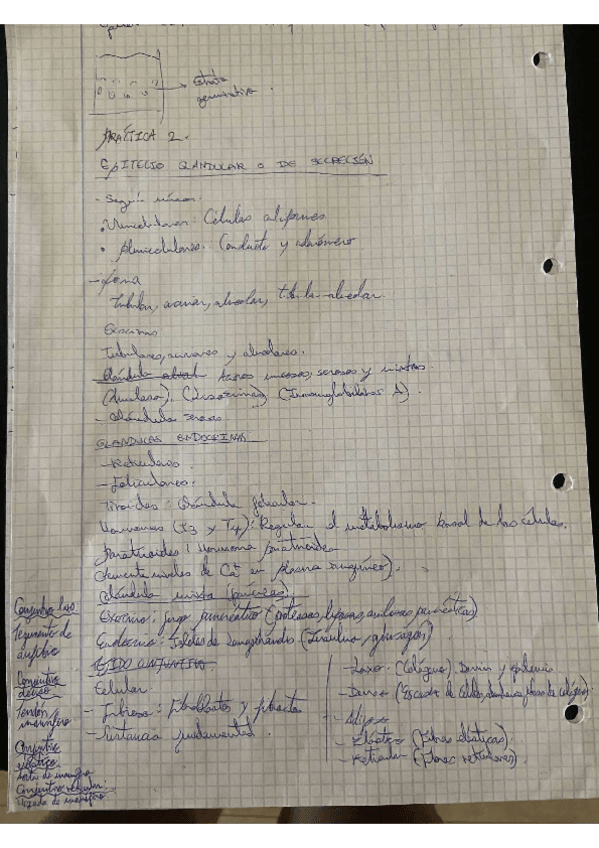 → estrato
germinativo.
PRÁCTICA 2.
EPITELIO GLANDULAR O DE SECRECIÓN
- Según número:
• Unicelulares: Células caliciformes
• Pluricelulares: Conducto y adenómero
- Forma
Tubular, acinar, alveolar, túbulo-alveolar.
Exocrinas
Tubulares, acinares y alveolares.
Glándula Acinos mucosos, serosos y mixtos.
(Amilasa), (Lisozimas) (Inmunoglobulinas A).
- Glándula serosa
GLANDULAS ENDOCRINAS
- Reticulares
- Foliculares.
Tiroides: Glándula folicular.
Hormonas (T3 y T4): Regular el metabolismo basal de las células.
Paratiroides: Hormona paratiroidea
(aumenta niveles de Ca en plasma sanguíneo).
Glándula mixta (páncreas):
Exocrino: jugo pancreático (proteasas, lipasas, amilasas pancreáticas)
Endocrino: Islotes de Langerhans (Insulina, glucagón).
TEJIDO CONJUNTIVO:
Celular:
- Fibroso: fibroblastos y fibrocitos
- Sustancia fundamental.
- Laxo: (Colágeno) Dermis y
- Denso (Escasez de células, abundancia fibras de colágeno).
- Adiposo
- Elástico (Fibras elásticas).
- Reticular (Fibras reticulares).
Conjuntivo laxo:
Tegumento de
anfibio
Conjuntivo
denso:
Tendón
mamífero
Conjuntivo
elástico:
Aorta de mamífero
Conjuntivo reticular:
Hígado de mamífero